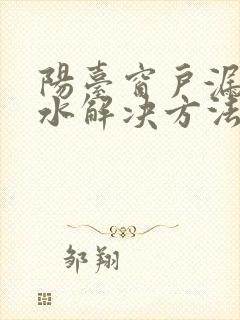 陽臺窗戶漏
水解决方法
邹翔